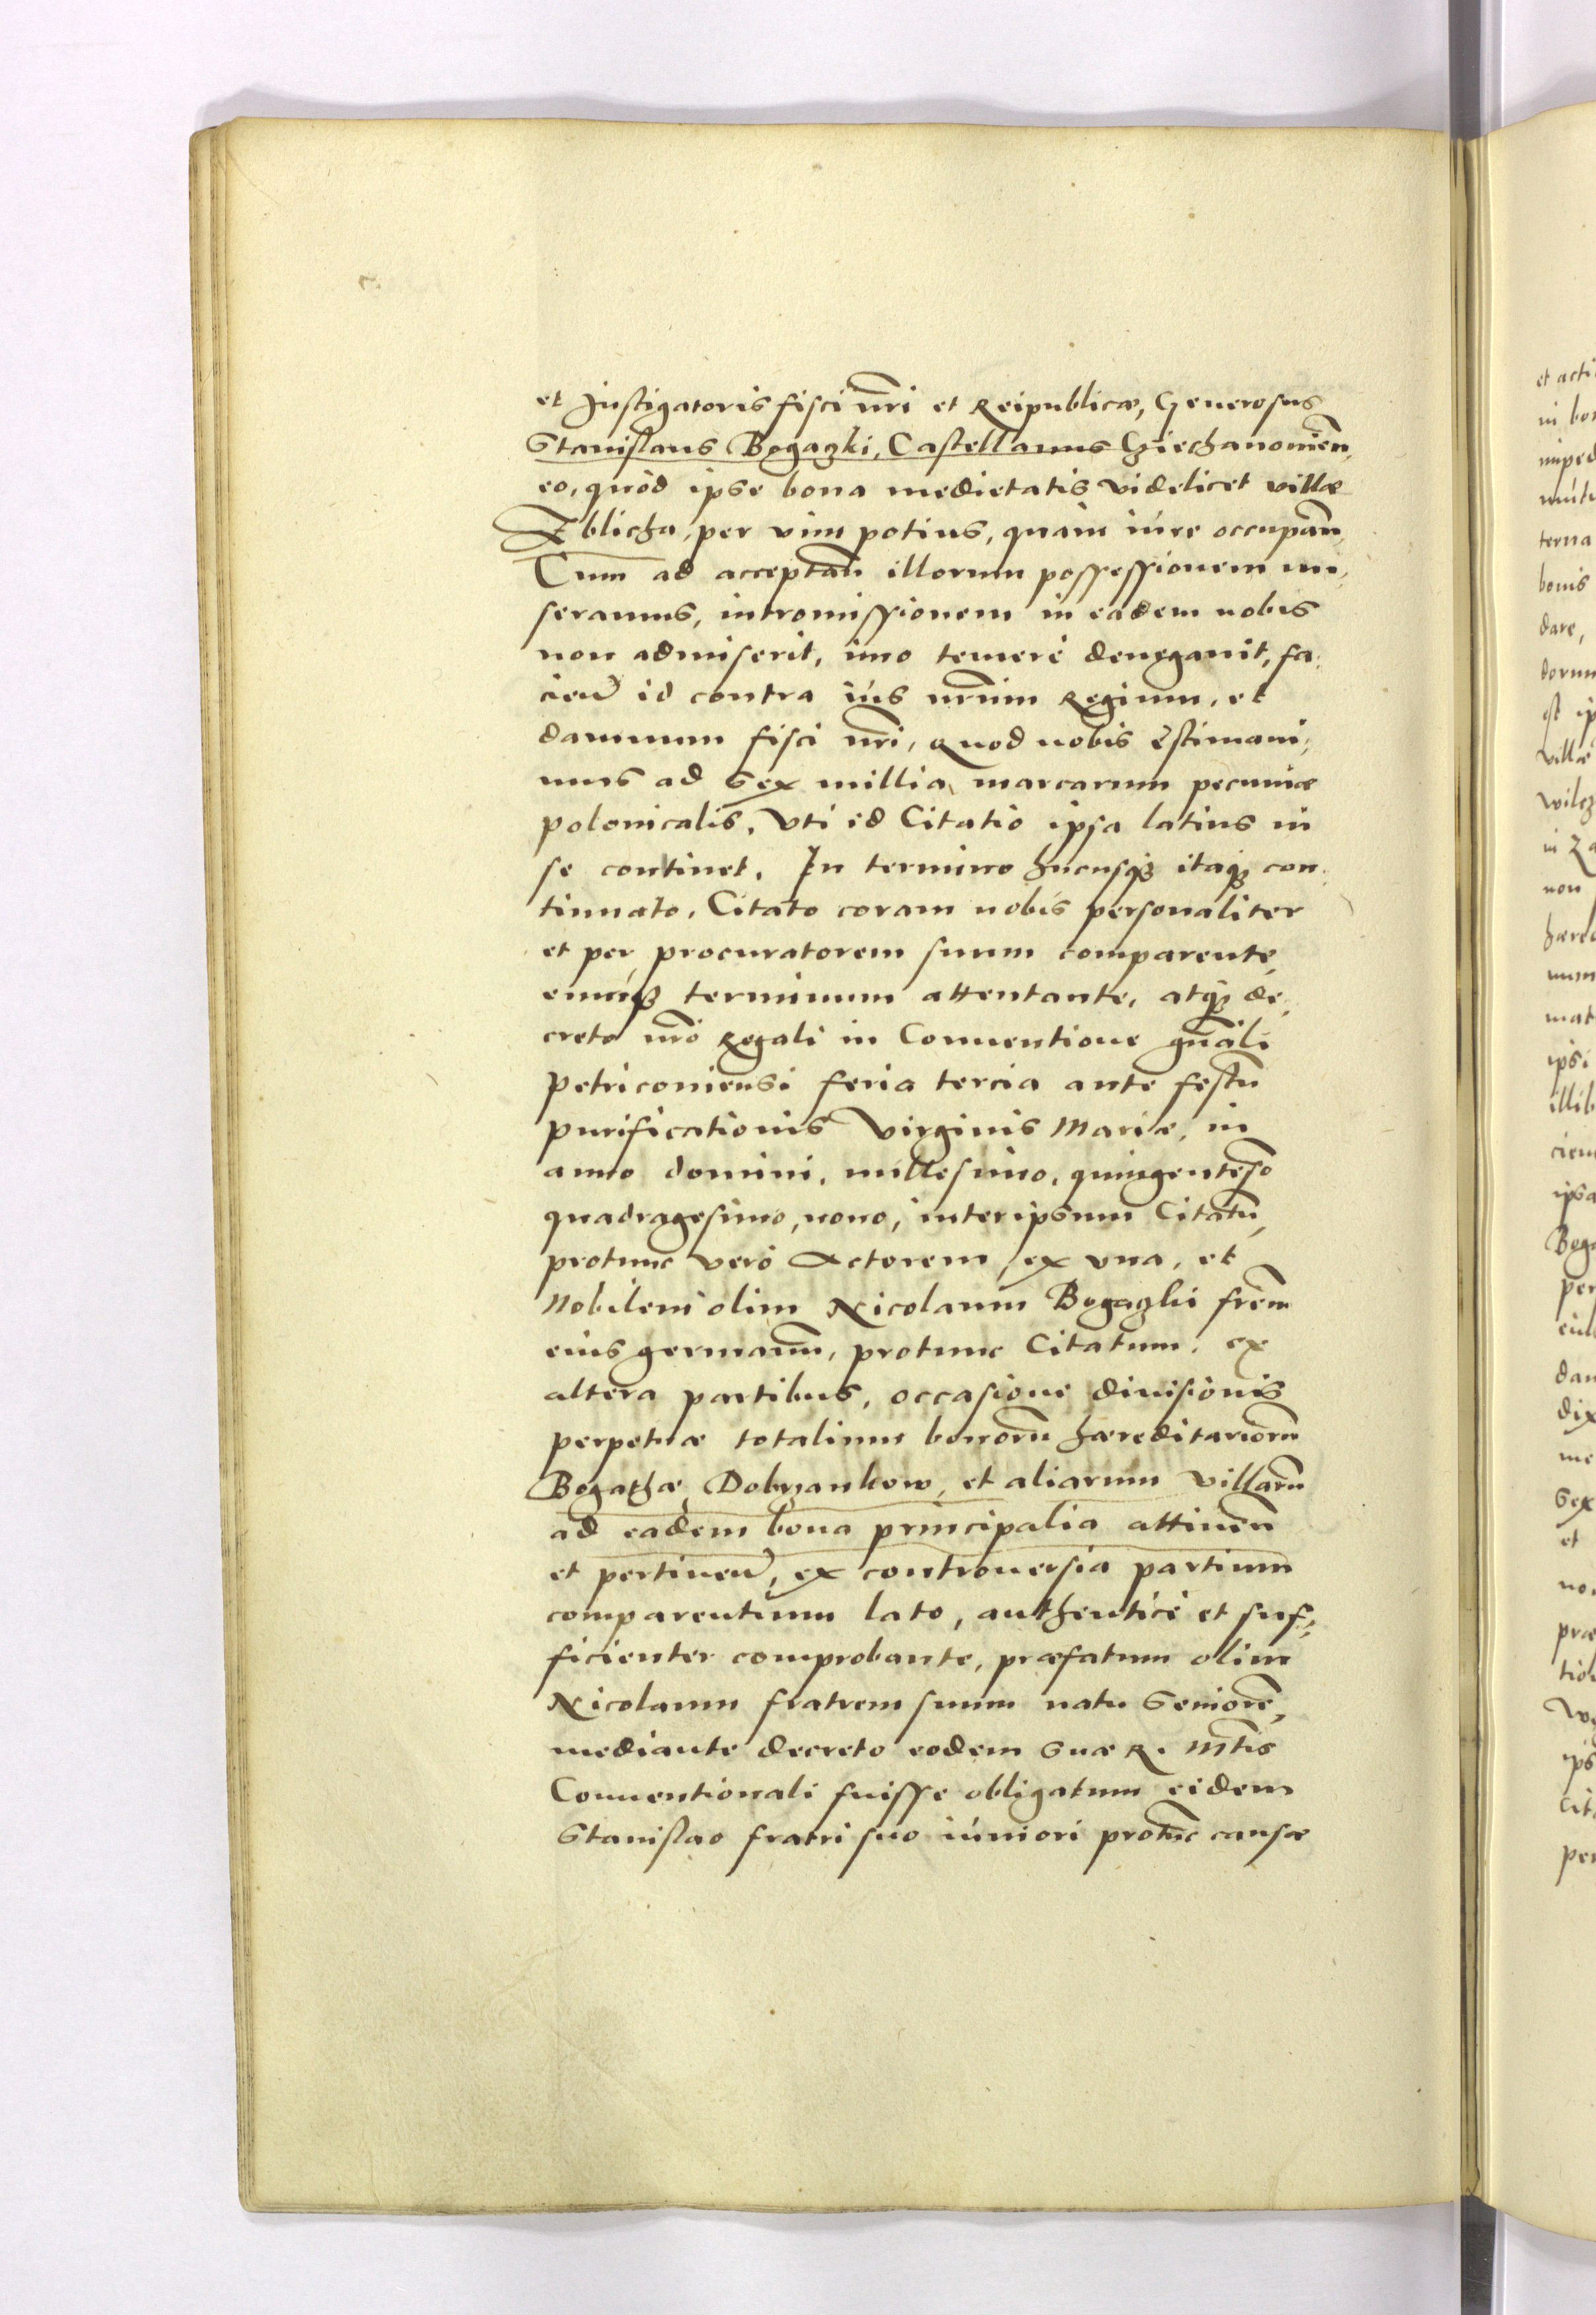 et Instigatoris fisci nri et Reipublicæ, Generosus
Stanislaus Bogaczki, Castellanus Cziechanouien,
eo, quòd ipse bona medietatis videlicet villæ
Zblicha, per vim potius, quàm iúre occupan,
Cum ad acceptan illorum possessionem mi,
seramus, intromissionem in eadem nobis
non admiserit, imo temerè denegauit, fa,
cien id contra iús nrum Regium, et
damnum fisci nri, quod nobis estimaui,
mus ad sex millia marcarum pecuniæ
polonicalis, vti id Citatio ipsa latius in
se continet. In termino hucusq; itaq; con,
tinuato, Citato coram nobis personaliter
et per procuratorem suum comparente,
eumq; terminum attentante, atq; de,
creto nro Regali in Conuentione gnali
Petricouiensi feria tercia ante festu
purificationis Virginis Mariæ, in
anno domini, millesimo, quingenteso
quadragesimo, nono, inter ipsum Citatu,
protunc verò Actorem, ex vna, et
Nobilem olim Nicolaum Bogaczki frem
eius germanu, protunc Citatum, ex
altera partibus, occasione diuisionis
perpetuæ totalium bonoru hæreditarioru
Bogathæ, Dobrzankow, et aliarum villaru
ad eadem bona principalia attinen
et pertinen, ex controuersia partium
comparentium lato, authenticè et suf,
ficienter comprobante, præfatum olim
Nicolaum fratrem suum natu seniore,
mediante decreto eodem suæ R. Mtis
Conuentionali fuisse obligatum eidem
Stanislao fratri suo iúniori protunc causæ